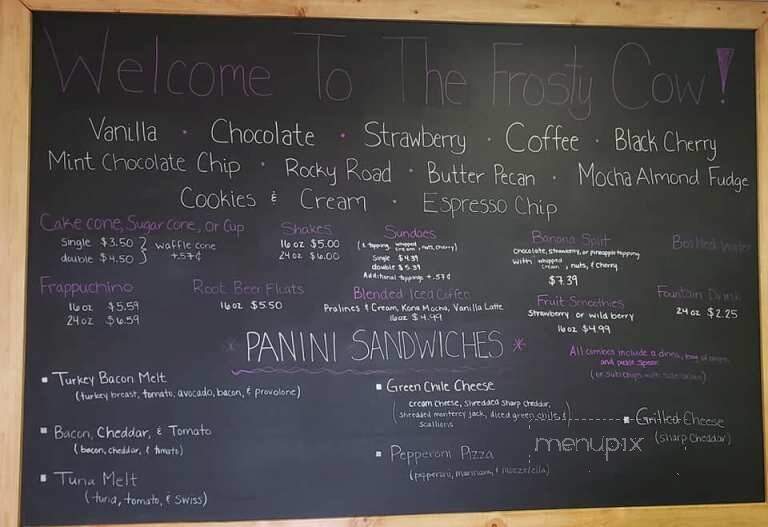 Welcome To The Frosty Cow!
Vanilla · Chocolate · Strawberry · Coffee · Black Cherry
Mint Chocolate Chip · Rocky Road · Butter Pecan · Mocha Almond Fudge
Cookies & Cream · Espresso Chip
Cake cone, Sugar cone, or Cup
Single $3.50
double $4.50
waffle cone
+.57¢
Shakes
16 oz $5.00
24 oz $6.00
Sundaes
(1 topping, whipped cream, nuts, cherry)
Single $4.39
double $5.39
Additional toppings +.57¢
Banana Split
Chocolate, strawberry, or pineapple topping
with whipped cream, nuts, & cherry
$7.39
Bottled Water
Frappuchino
16 oz $5.59
24 oz $6.59
Root Beer Floats
16 oz $5.50
Blended Iced Coffee
Pralines & Cream, Kona Mocha, Vanilla Latte
16 oz $4.99
Fruit Smoothies
Strawberry or wild berry
16 oz $4.99
Fountain Drink
24 oz $2.25
* PANINI SANDWICHES *
All combos include a drink, bag of chips
and pickle spear
(or sub chips with
Turkey Bacon Melt
(turkey breast, tomato, avocado, bacon, & provolone)
Bacon, Cheddar, & Tomato
(bacon, cheddar, & tomato)
Tuna Melt
(tuna, tomato, & swiss)
Green Chile Cheese
(cream cheese, shredded sharp cheddar,
shredded monterey jack, diced green chile, &
scallions)
Pepperoni Pizza
(pepperoni, marinara, & mozzarella)
Grilled Cheese
(sharp cheddar)
menupix